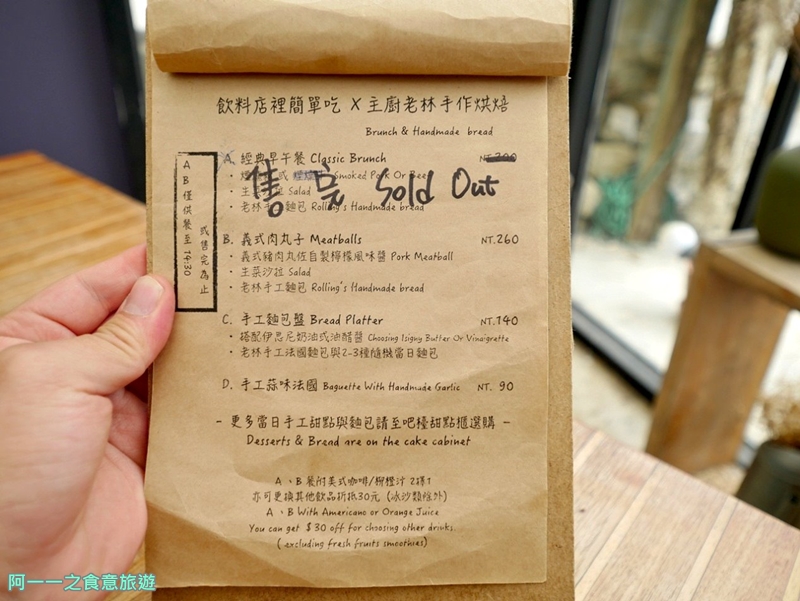 飲料店裡簡單吃 X 主廚老林手作烘焙
Brunch & Handmade bread
A B 僅供餐至 14:30
或售完為止
A. 經典早午餐 Classic Brunch NT.290
Smoked Pork Or Beef
售完 Sold Out
沙拉 Salad
• 老林手工麵包 Rolling's Handmade bread
B. 義式肉丸子 Meatballs NT.260
• 義式豬肉丸佐自製檸檬風味醬 Pork Meatball
• 生菜沙拉 Salad
• 老林手工麵包 Rolling's Handmade bread
C. 手工麵包盤 Bread Platter NT.140
• 搭配伊思尼奶油或油醋醬 Choosing Isigny Butter Or Vinaigrette
• 老林手工法國麵包與2-3種隨機當日麵包
D. 手工蒜味法國 Baguette With Handmade Garlic NT. 90
- 更多當日手工甜點與麵包請至吧檯甜點櫃選購 -
Desserts & Bread are on the cake cabinet
A、B 餐附美式咖啡/柳橙汁 2擇1
亦可更換其他飲品折抵30元 (冰沙類除外)
A、B With Americano or Orange Juice
You can get $30 off for choosing other drinks.
( excluding fresh fruits smoothies)
阿一一之食意旅遊